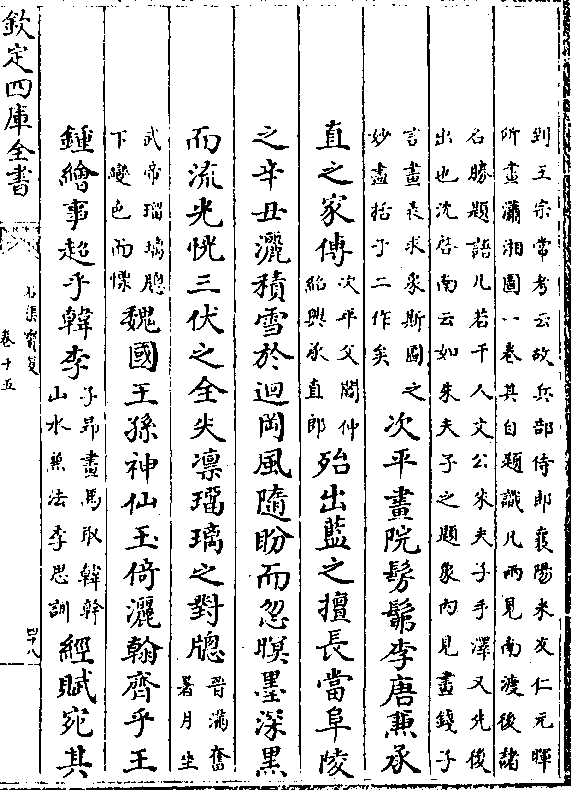 到王宗常考云故兵部侍郎襄陽米友仁元暉
所畫瀟湘圖一卷其自題識凡兩見南渡後諸
名勝題語凡若干人文公朱夫子手澤又先後
出也沈啓南云如朱夫子之題象內見畫錢子
言畫求象斯圖之
妙盡括于二作矣
次平畫院髣髴李唐兼承
直之家傅
次平父閻仲
紹興承直郎
殆出藍之擅長當阜陵
之辛丑灑積雪於迴岡風隨盼而忽暝墨深黑
而流光恍三伏之全失凛瑠璃之對牎
晉滿奮
暑月坐
武帝瑠璃牎
下變色而慄
魏國王孫神仙玉倚灑翰齊乎王
鍾繪事超乎韓李
子昻畫馬取韓幹
山水兼法李思訓
經賦宛其
欽定四庫全書
石渠寶笈
卷十五
四十八